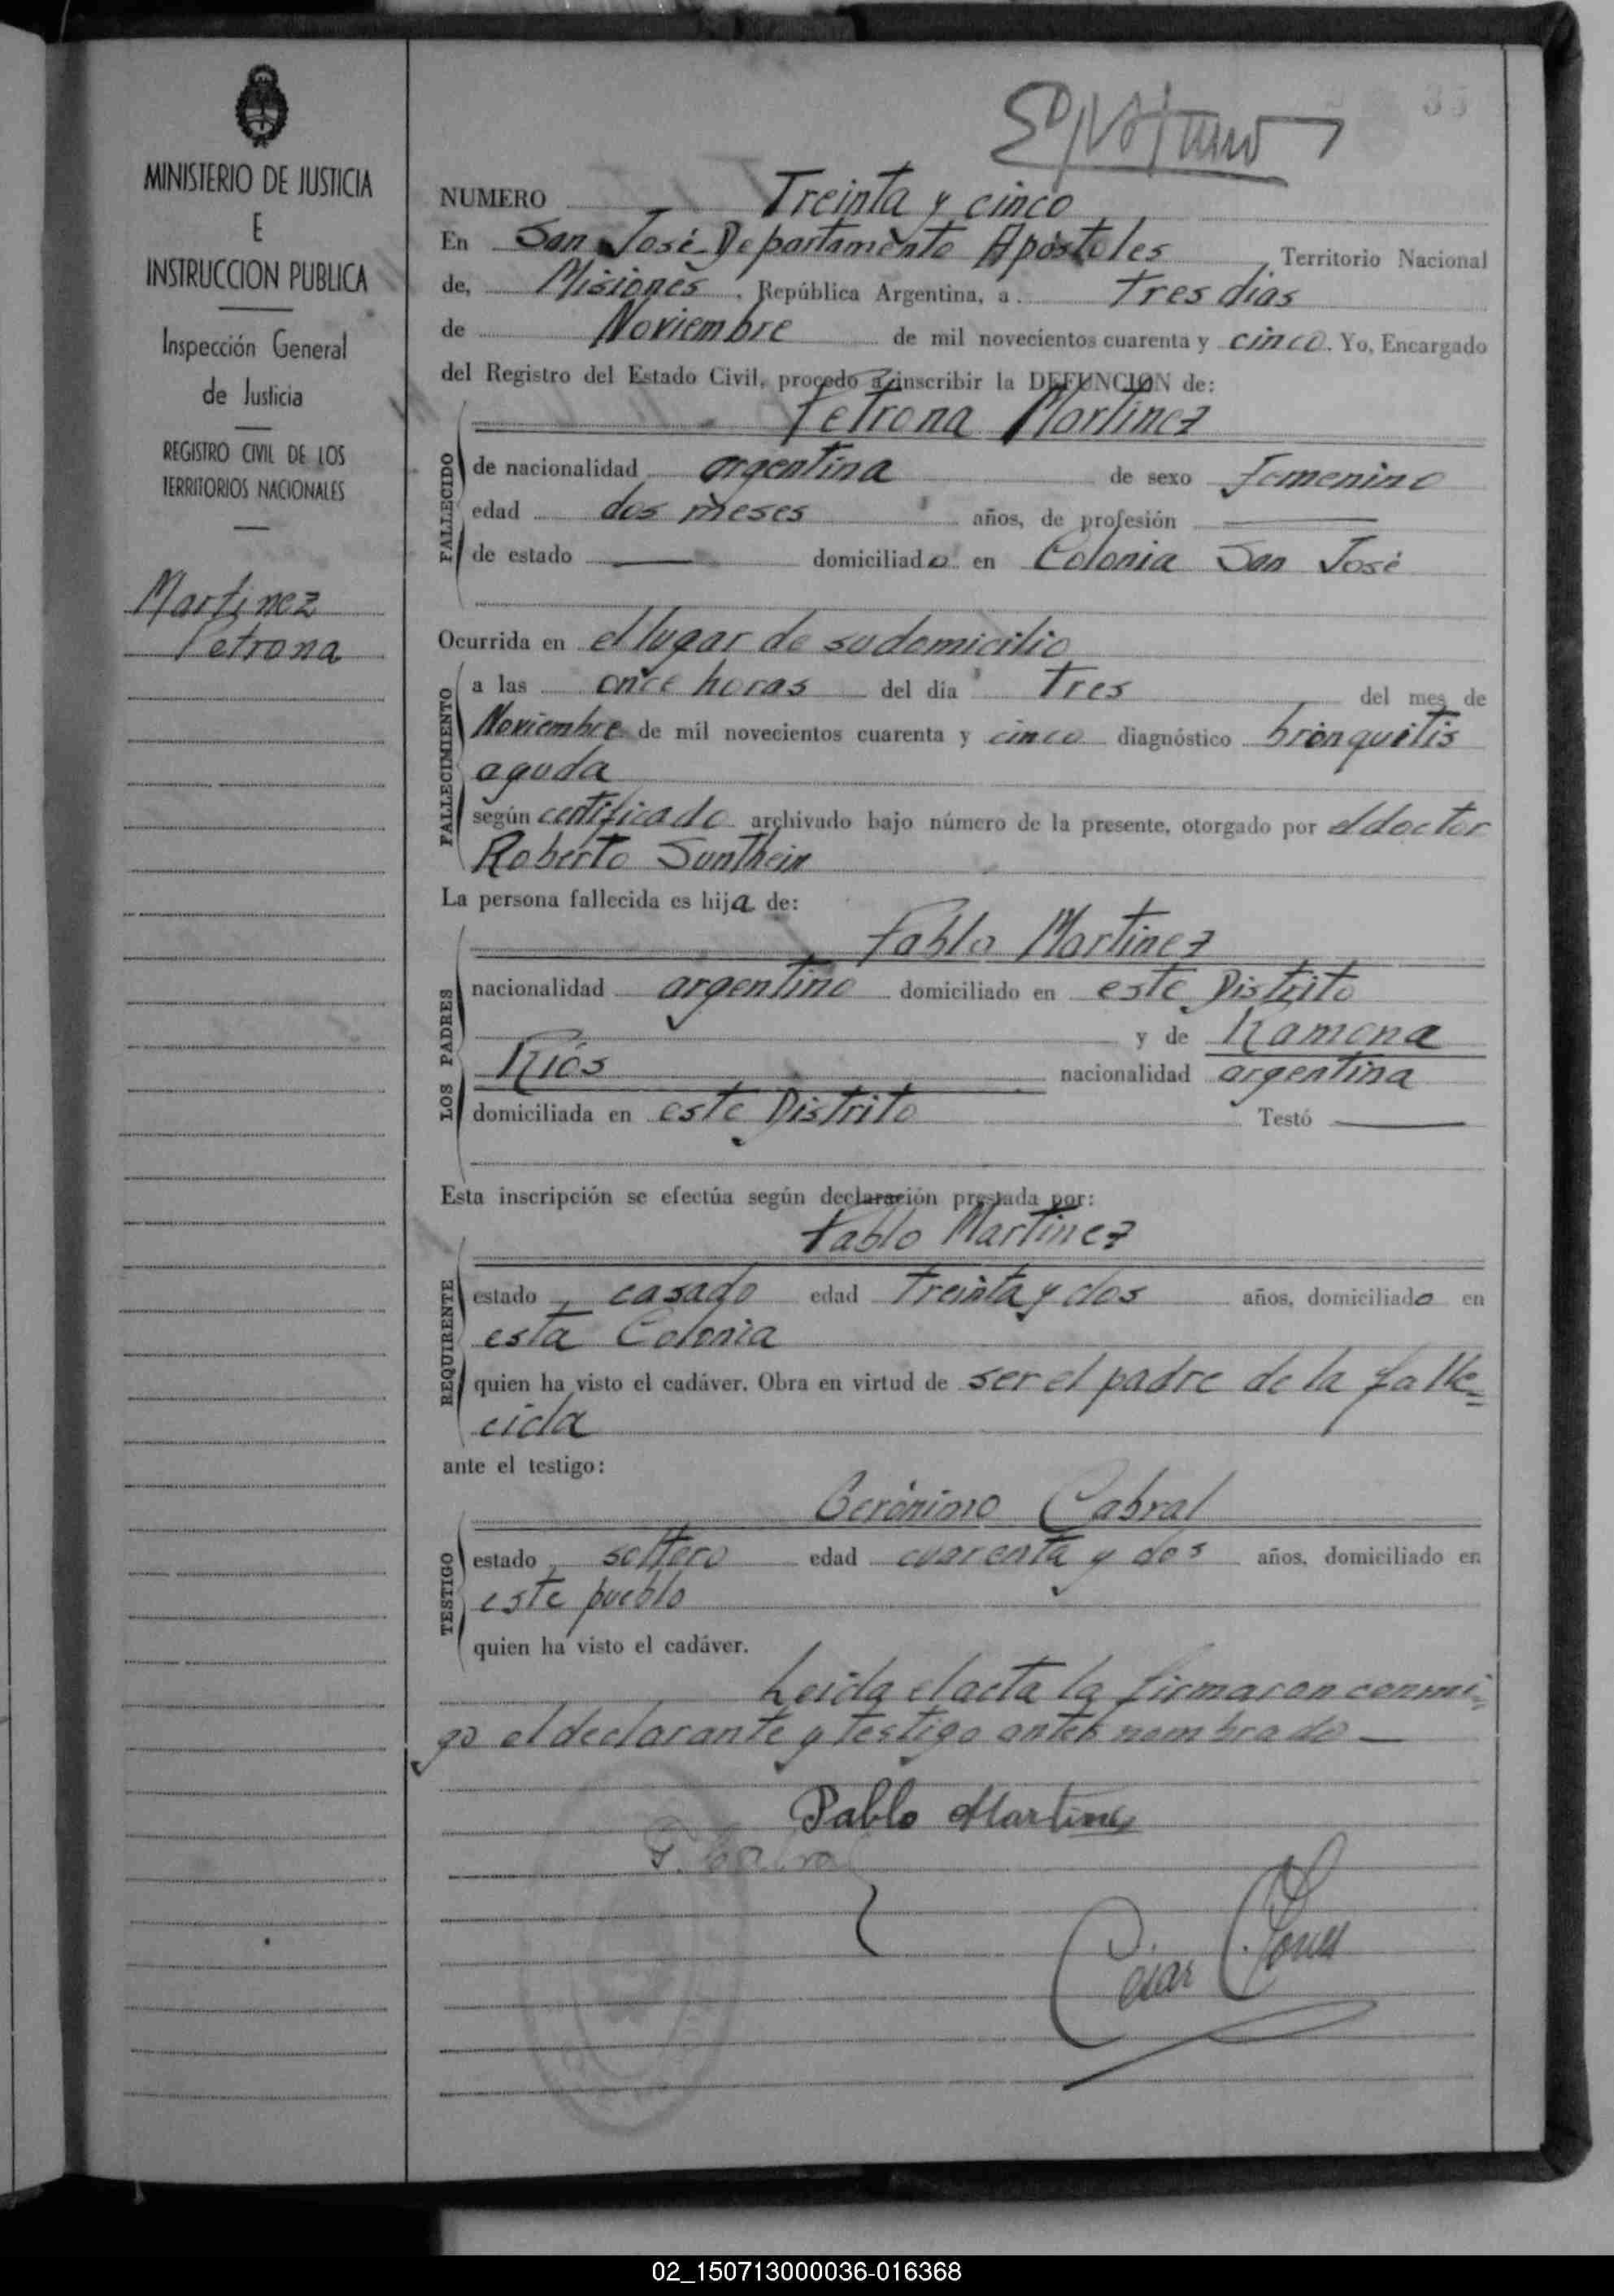 MINISTERIO DE JUSTICIA
E
INSTRUCCION PUBLICA
Inspección General
de Justicia
REGISTRO CIVIL DE LOS
TERRITORIOS NACIONALES
Martinez
Petrona
35
NUMERO Treinta y cinco
En San José Departamento Apóstoles, Territorio Nacional
de, Misiones, República Argentina, a tres dias
de Noviembre de mil novecientos cuarenta y cinco. Yo, Encargado
del Registro del Estado Civil, procedo a inscribir la DEFUNCION de:
Petrona Martinez
FALLECIDO
de nacionalidad argentina de sexo femenino
edad dos meses años, de profesión
de estado domiciliado en Colonia San José
Ocurrida en el lugar de su domicilio
FALLECIMIENTO
a las once horas del día tres del mes de
Noviembre de mil novecientos cuarenta y cinco diagnóstico bronquitis
aguda
según certificado archivado bajo número de la presente, otorgado por el doctor
Roberto Sunthein
La persona fallecida es hija de:
Pablo Martinez
LOS PADRES
nacionalidad argentino domiciliado en este Distrito
y de Ramona
Ríos nacionalidad argentina
domiciliada en este Distrito Testó
Esta inscripción se efectúa según declaración prestada por:
Pablo Martinez
REQUIRENTE
estado casado edad treinta y dos años, domiciliado en
esta Colonia
quien ha visto el cadáver. Obra en virtud de ser el padre de la falle=
cida
ante el testigo:
Gerónimo Cabral
TESTIGO
estado soltero edad cuarenta y dos años, domiciliado en
este pueblo
quien ha visto el cadáver.
Leida el acta la firmaron conmi=
go el declarante y testigo antes nombrado
Pablo Martinez
G. Cabral
02_150713000036-016368